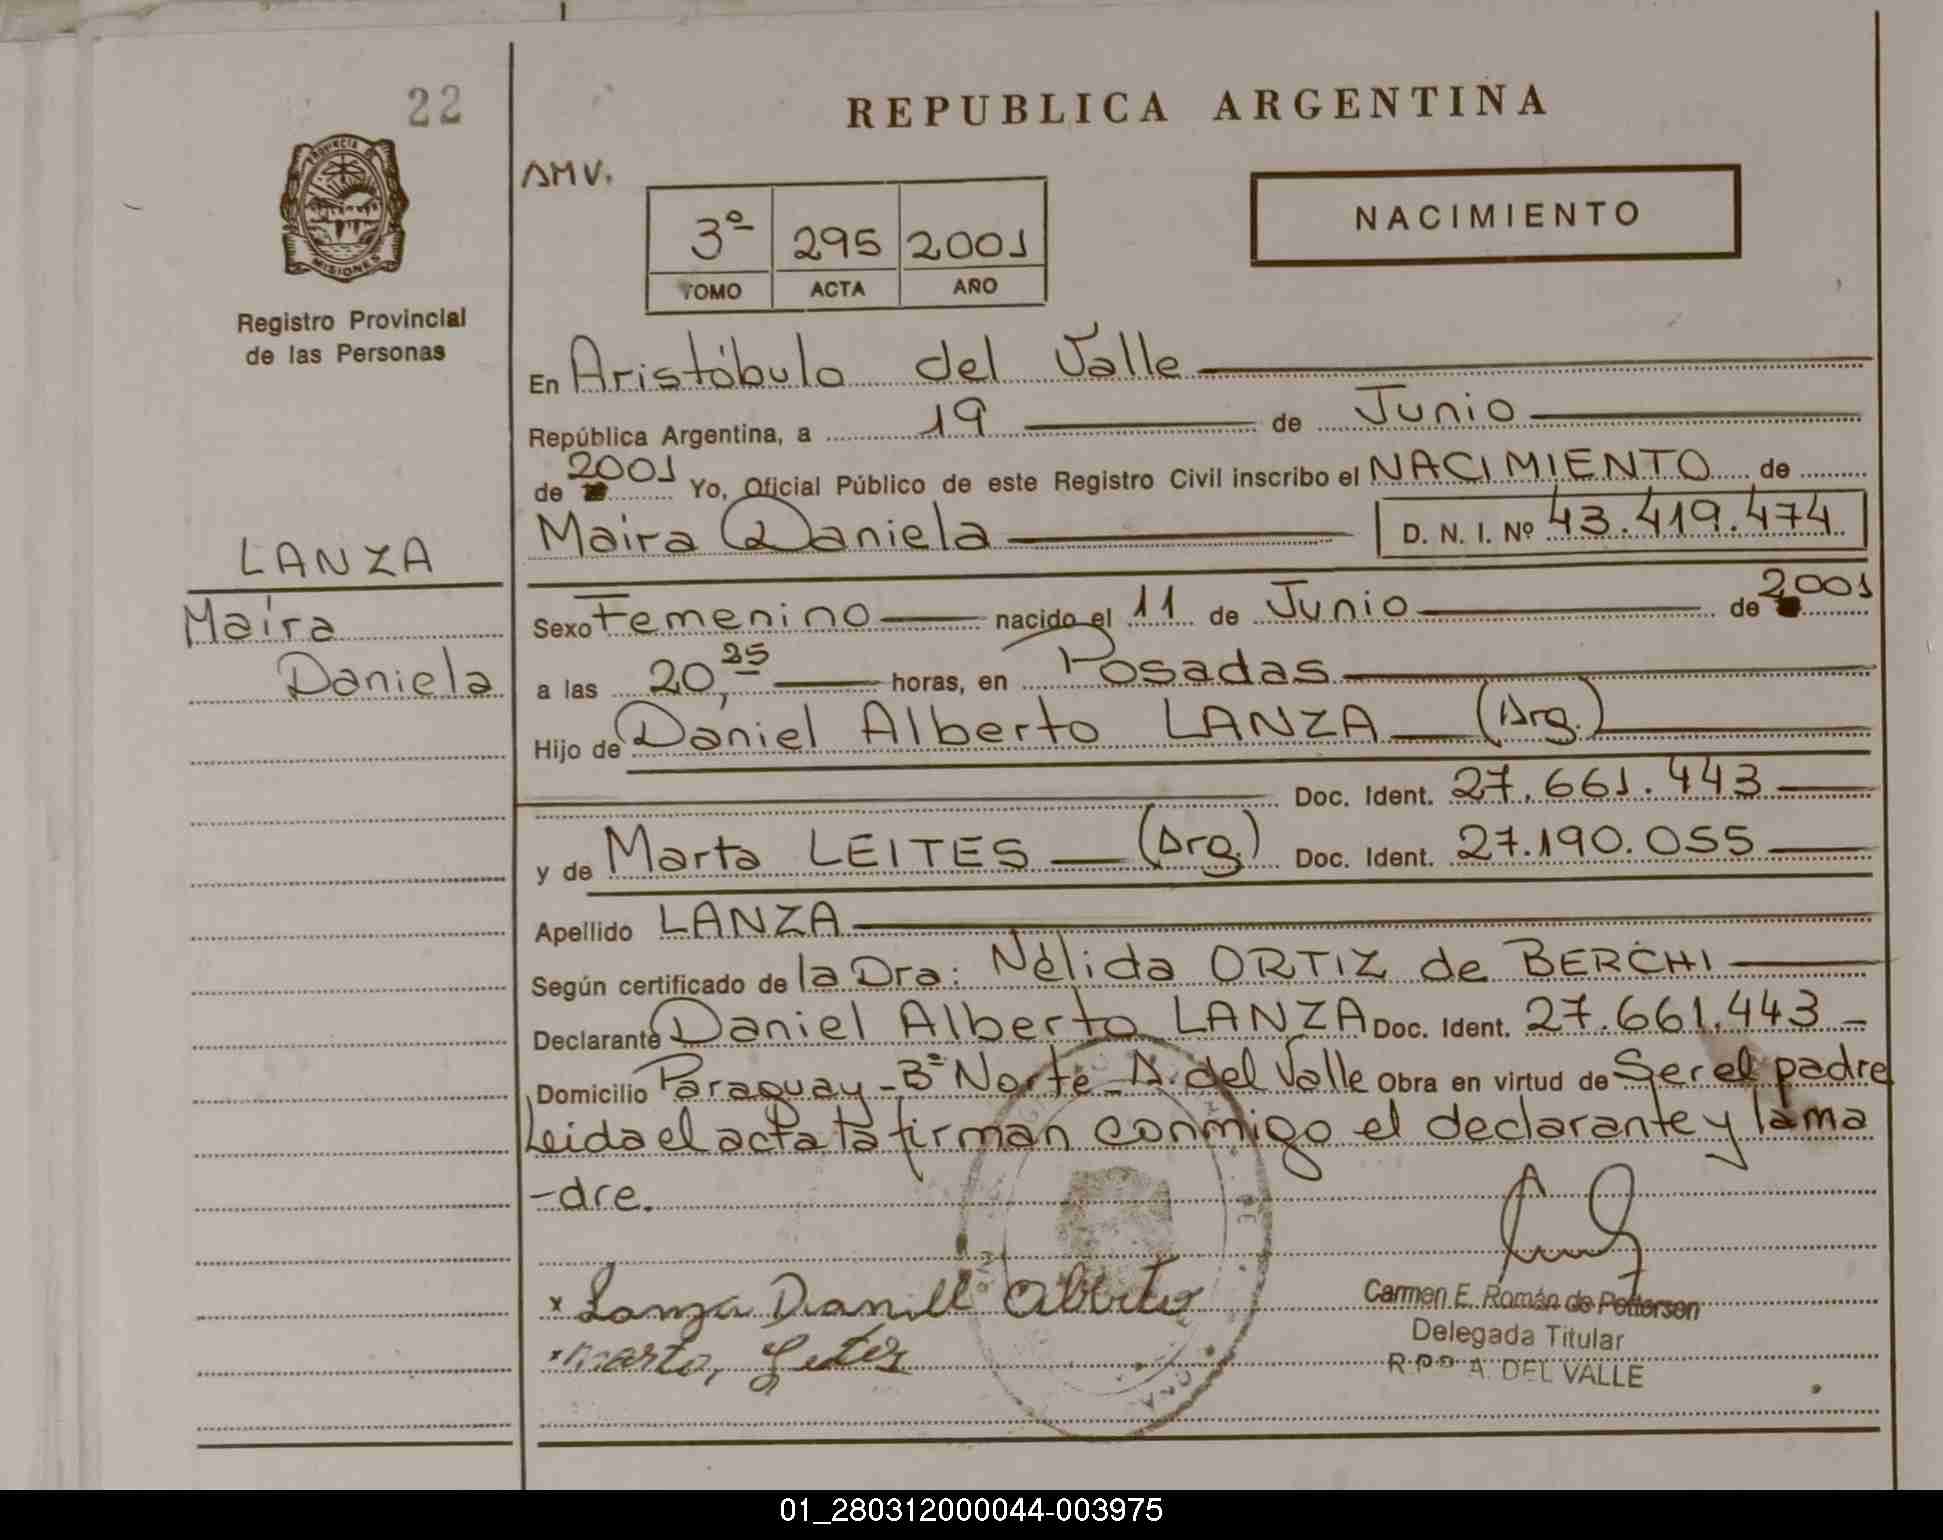 22
PROVINCIA DE
MISIONES
Registro Provincial
de las Personas
LANZA
Maira
Daniela
REPUBLICA ARGENTINA
AMV.
3º 295 2001
TOMO ACTA AÑO
NACIMIENTO
En Aristóbulo del Valle
República Argentina, a 19 de Junio
de 2001 Yo, Oficial Público de este Registro Civil inscribo el NACIMIENTO de
Maira Daniela D. N. I. Nº 43.419.474
Sexo Femenino nacido el 11 de Junio de 2001
a las 20, horas, en Posadas
Hijo de Daniel Alberto LANZA (Arg.)
Doc. Ident. 27.661.443
y de Marta LEITES (Arg.) Doc. Ident. 27.190.055
Apellido LANZA
Según certificado de la Dra: Nélida ORTIZ de BERCHI
Declarante Daniel Alberto LANZA Doc. Ident. 27.661.443
Domicilio Paraguay - Bº Norte - A. del Valle Obra en virtud de Ser el padre
Leida el acta ta firman conmigo el declarante y la ma
-dre.
x Lanza Daniel Alberto
x marta, Leites
Carmen E. Román de Pettersen
Delegada Titular
R.P.P. A. DEL VALLE
01_280312000044-003975